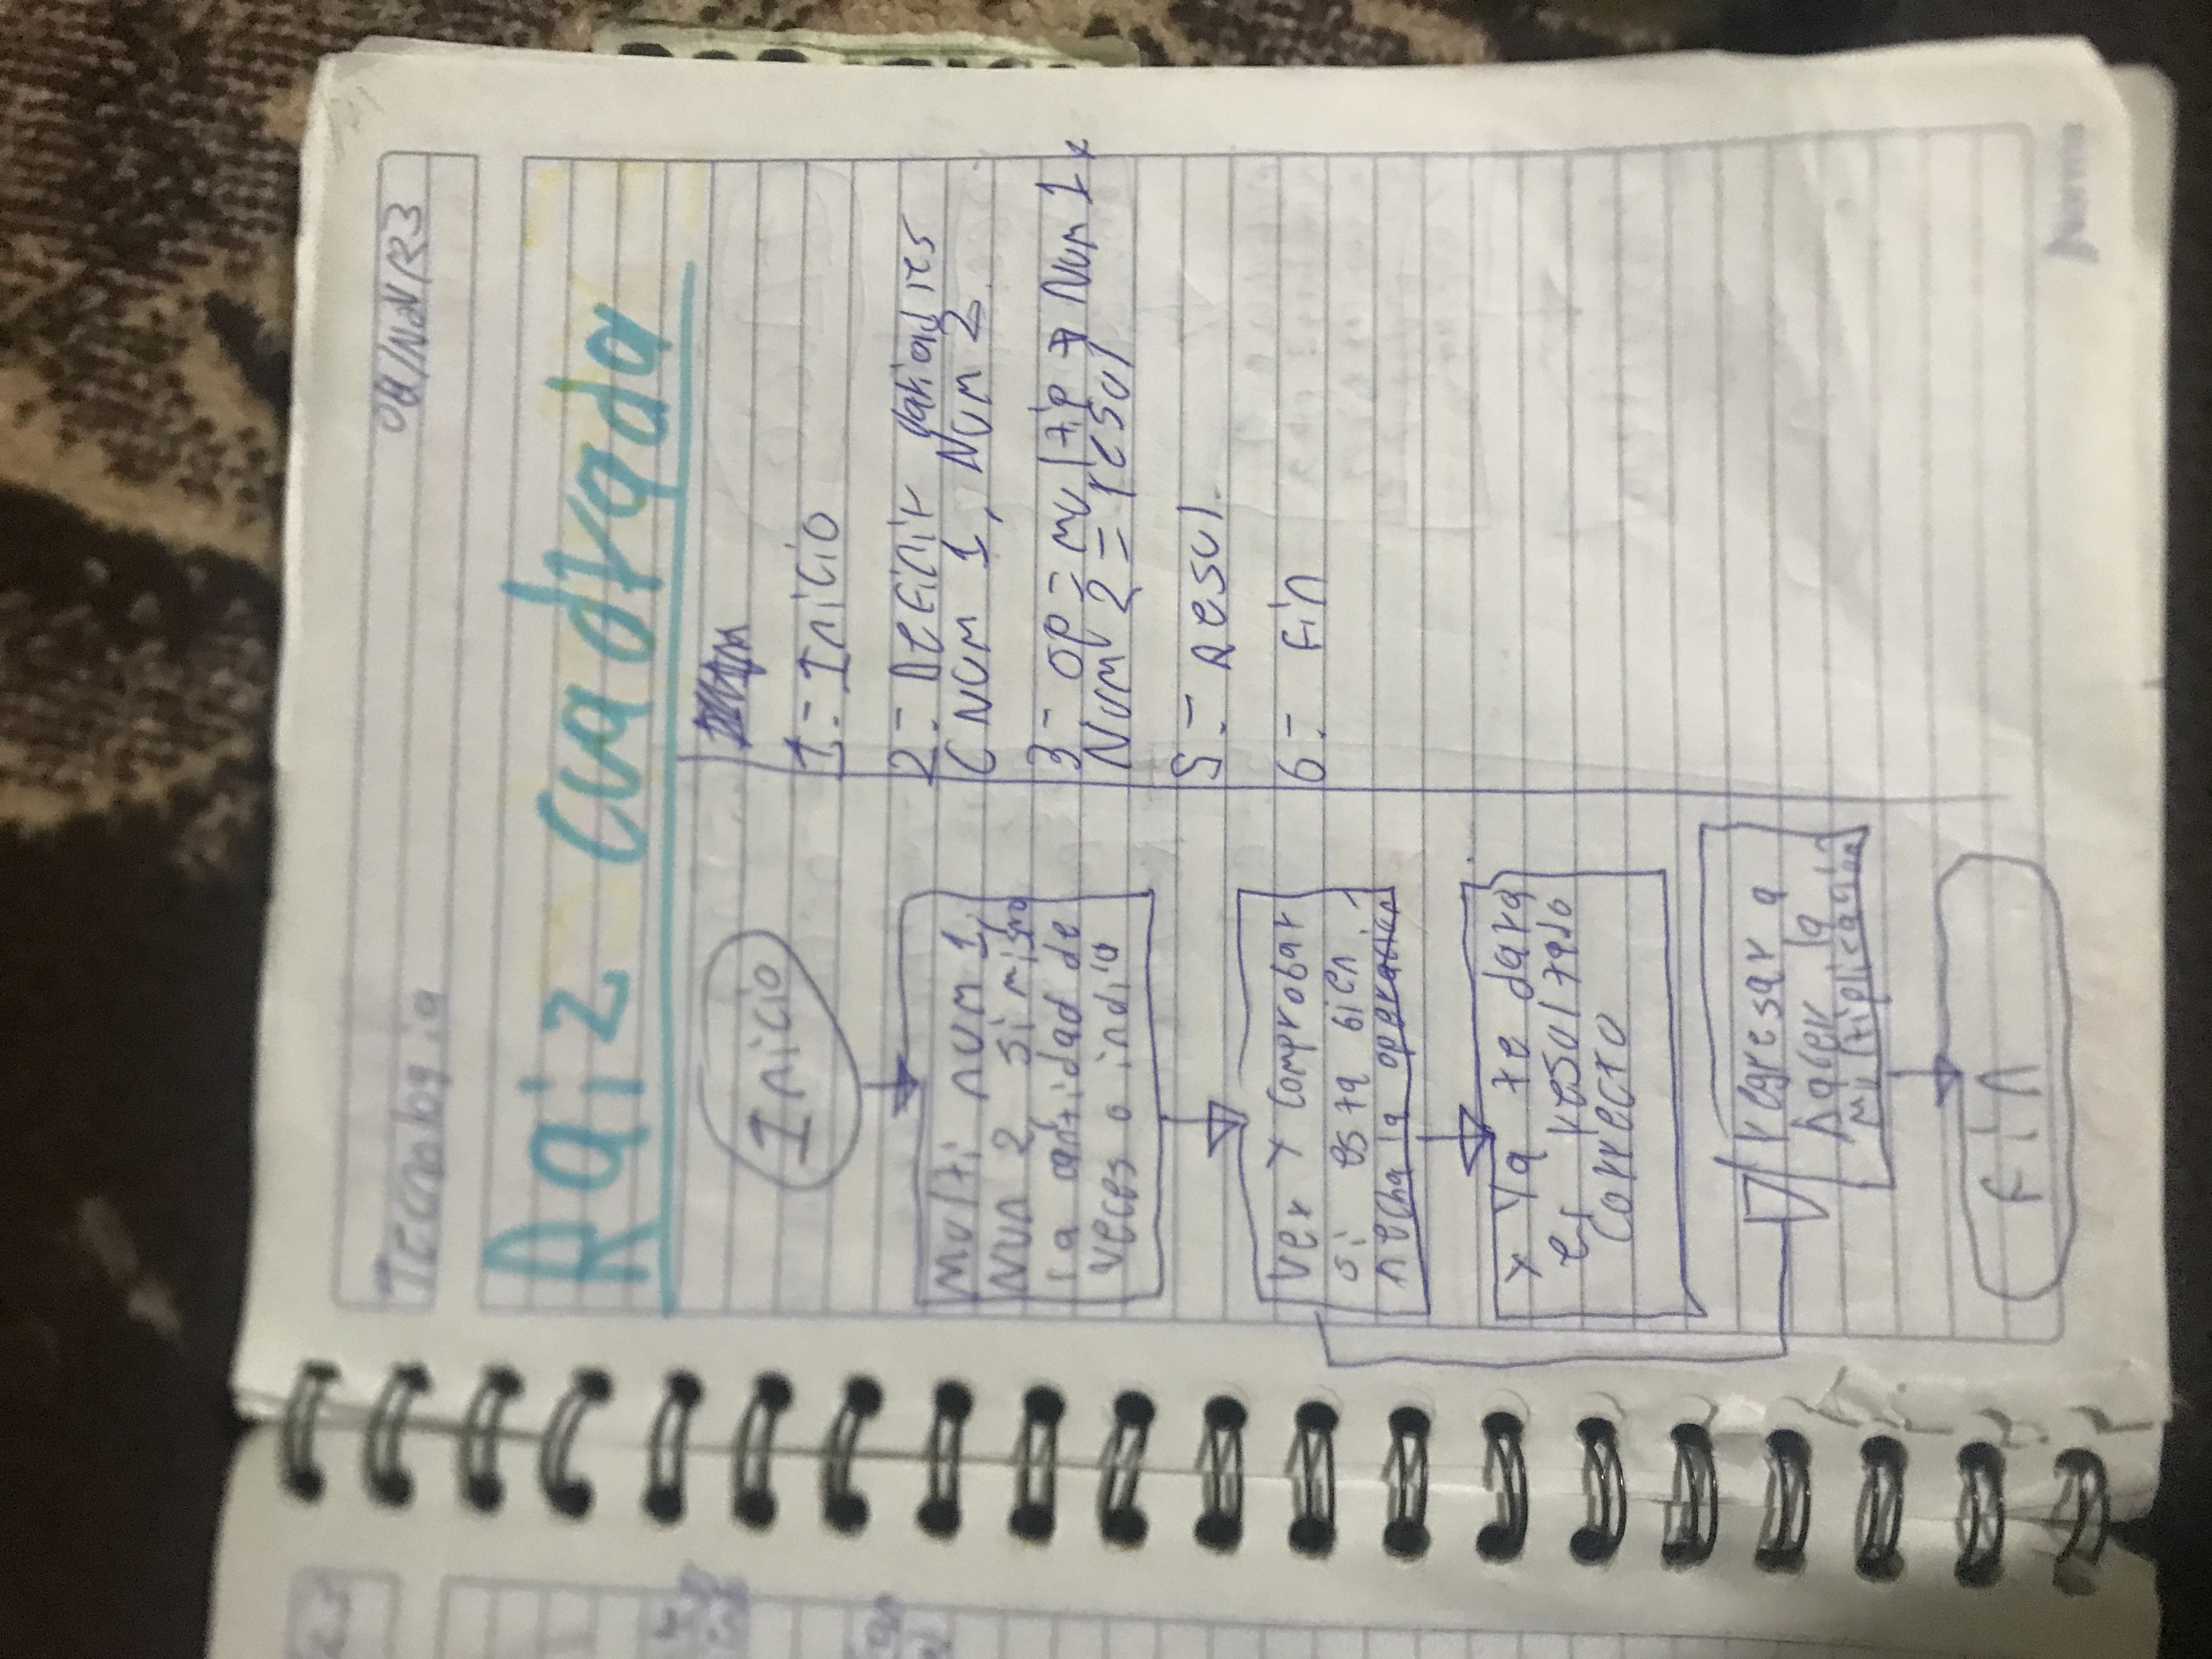 Tecnologia
Raiz Cuadrada
Inicio
Multi num 1,
Num 2 si mismo
la cantidad de
veces o indio
ver y comprobar
si esta bien
hecha la operacion
y Ya te dara
el resultado
Correcto
regresar a
hacer la
multiplicacion
Fin
1.- Inicio
2.- Definir variables
Num 1, Num 2
3- OP = multip → Num 1 x
Num 2 = resul
5.- Resul.
6.- Fin